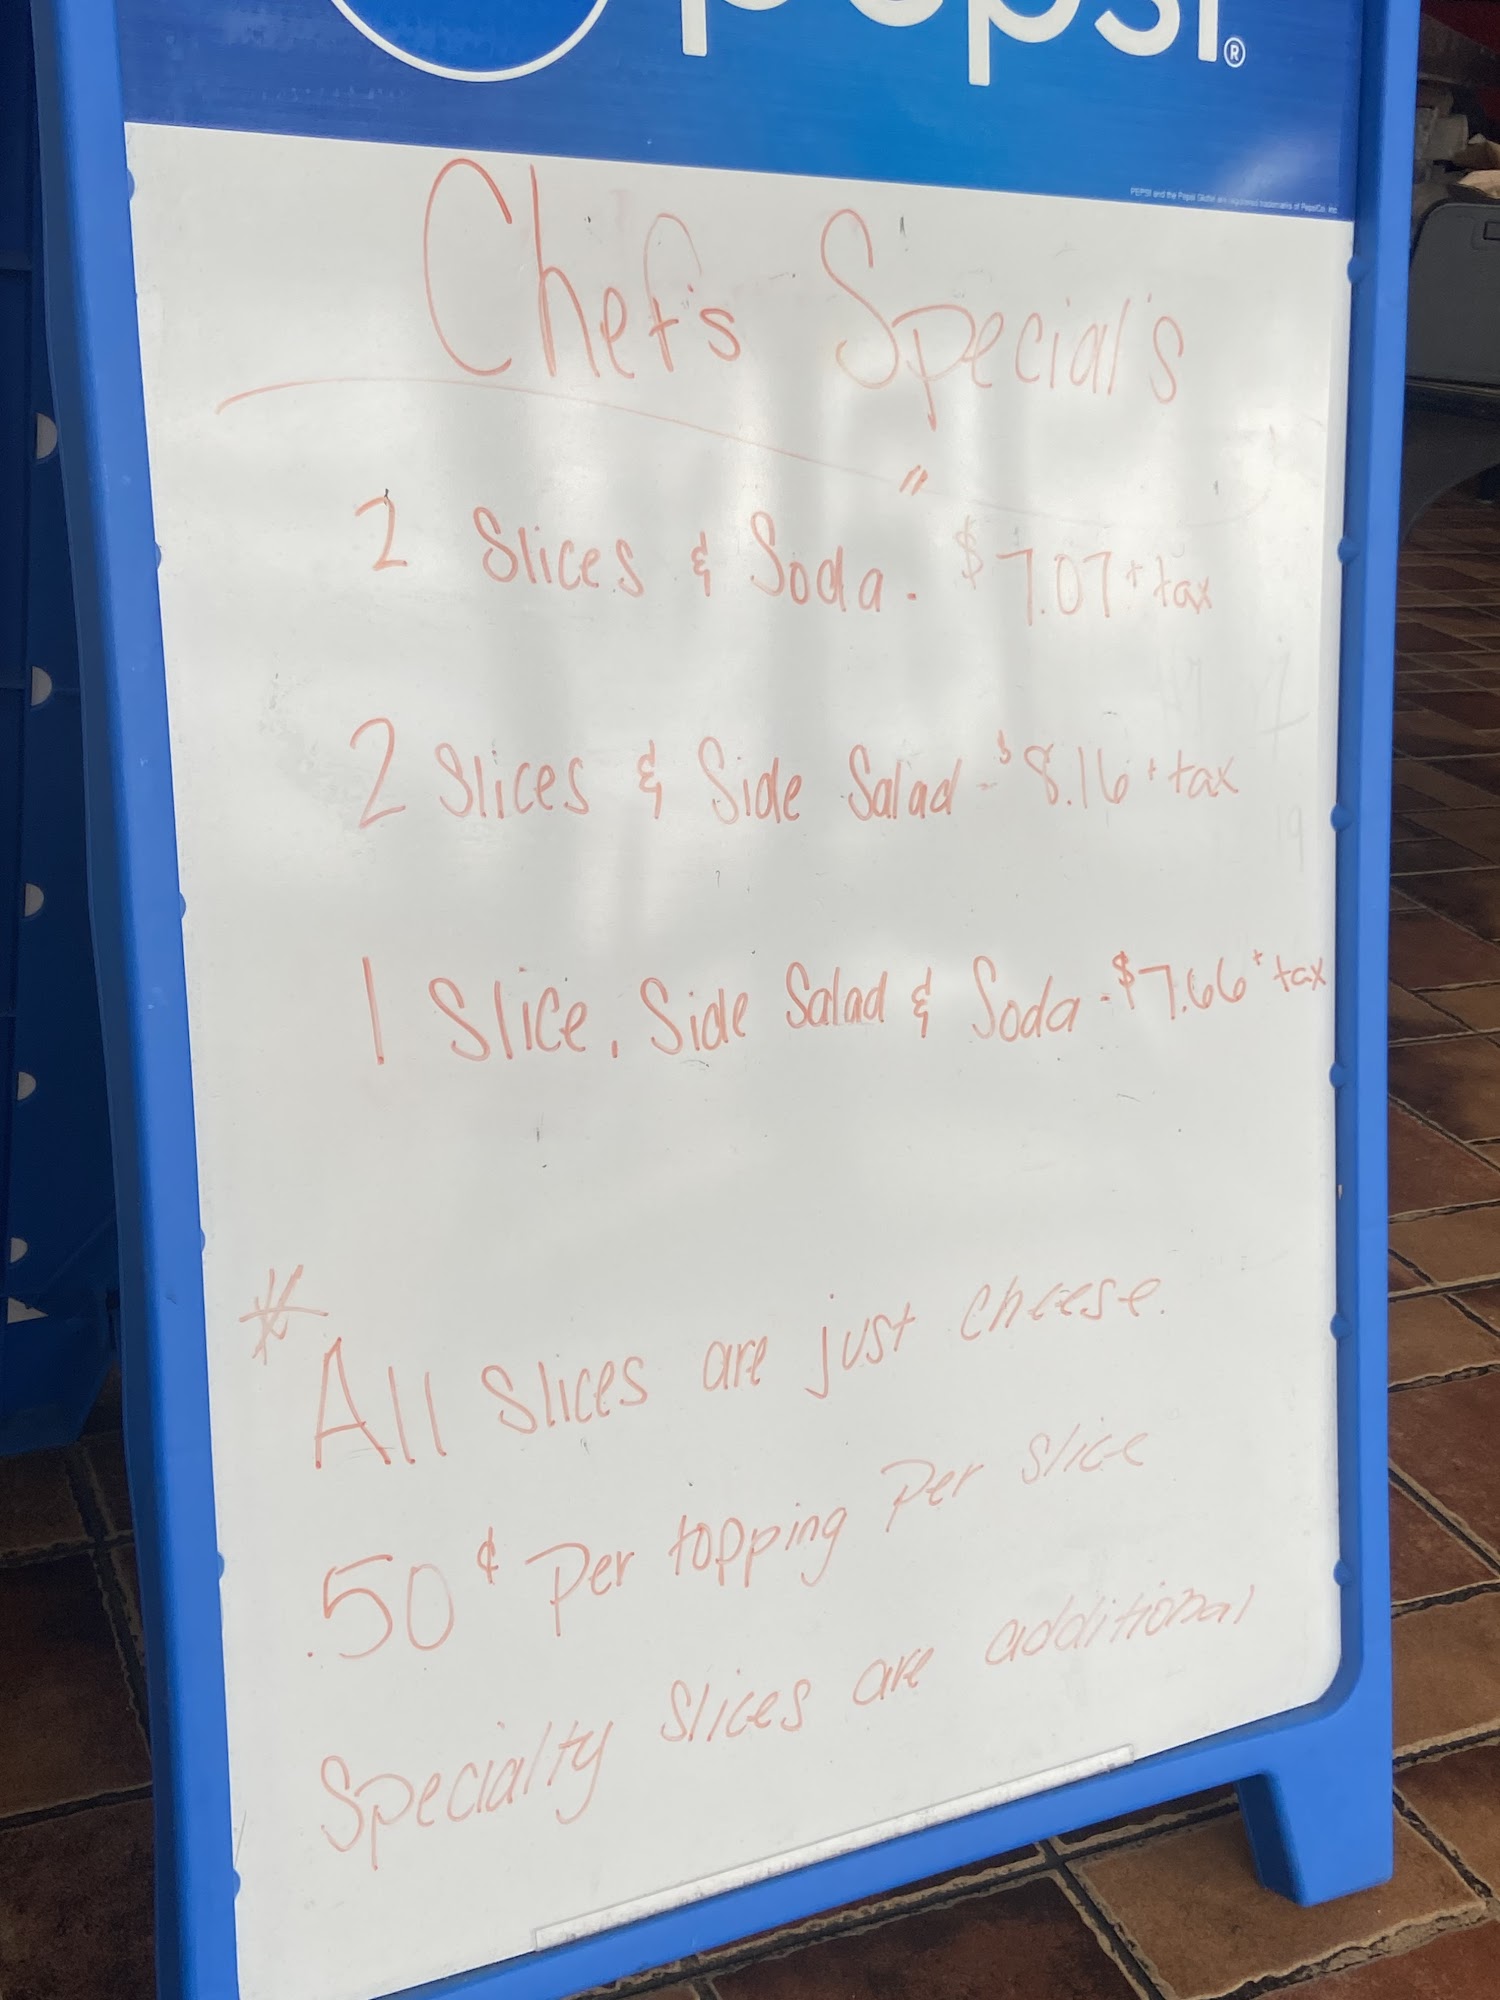 pepsi®
PEPSI and the Pepsi Globe are registered trademarks of PepsiCo, Inc.
Chef's Special's
"
2 Slices & Soda. $7.07 + tax
2 Slices & Side Salad - $8.16 + tax
1 Slice, Side Salad & Soda - $7.66 + tax
* All Slices are just cheese.
.50¢ Per topping Per Slice
Specialty Slices are additional